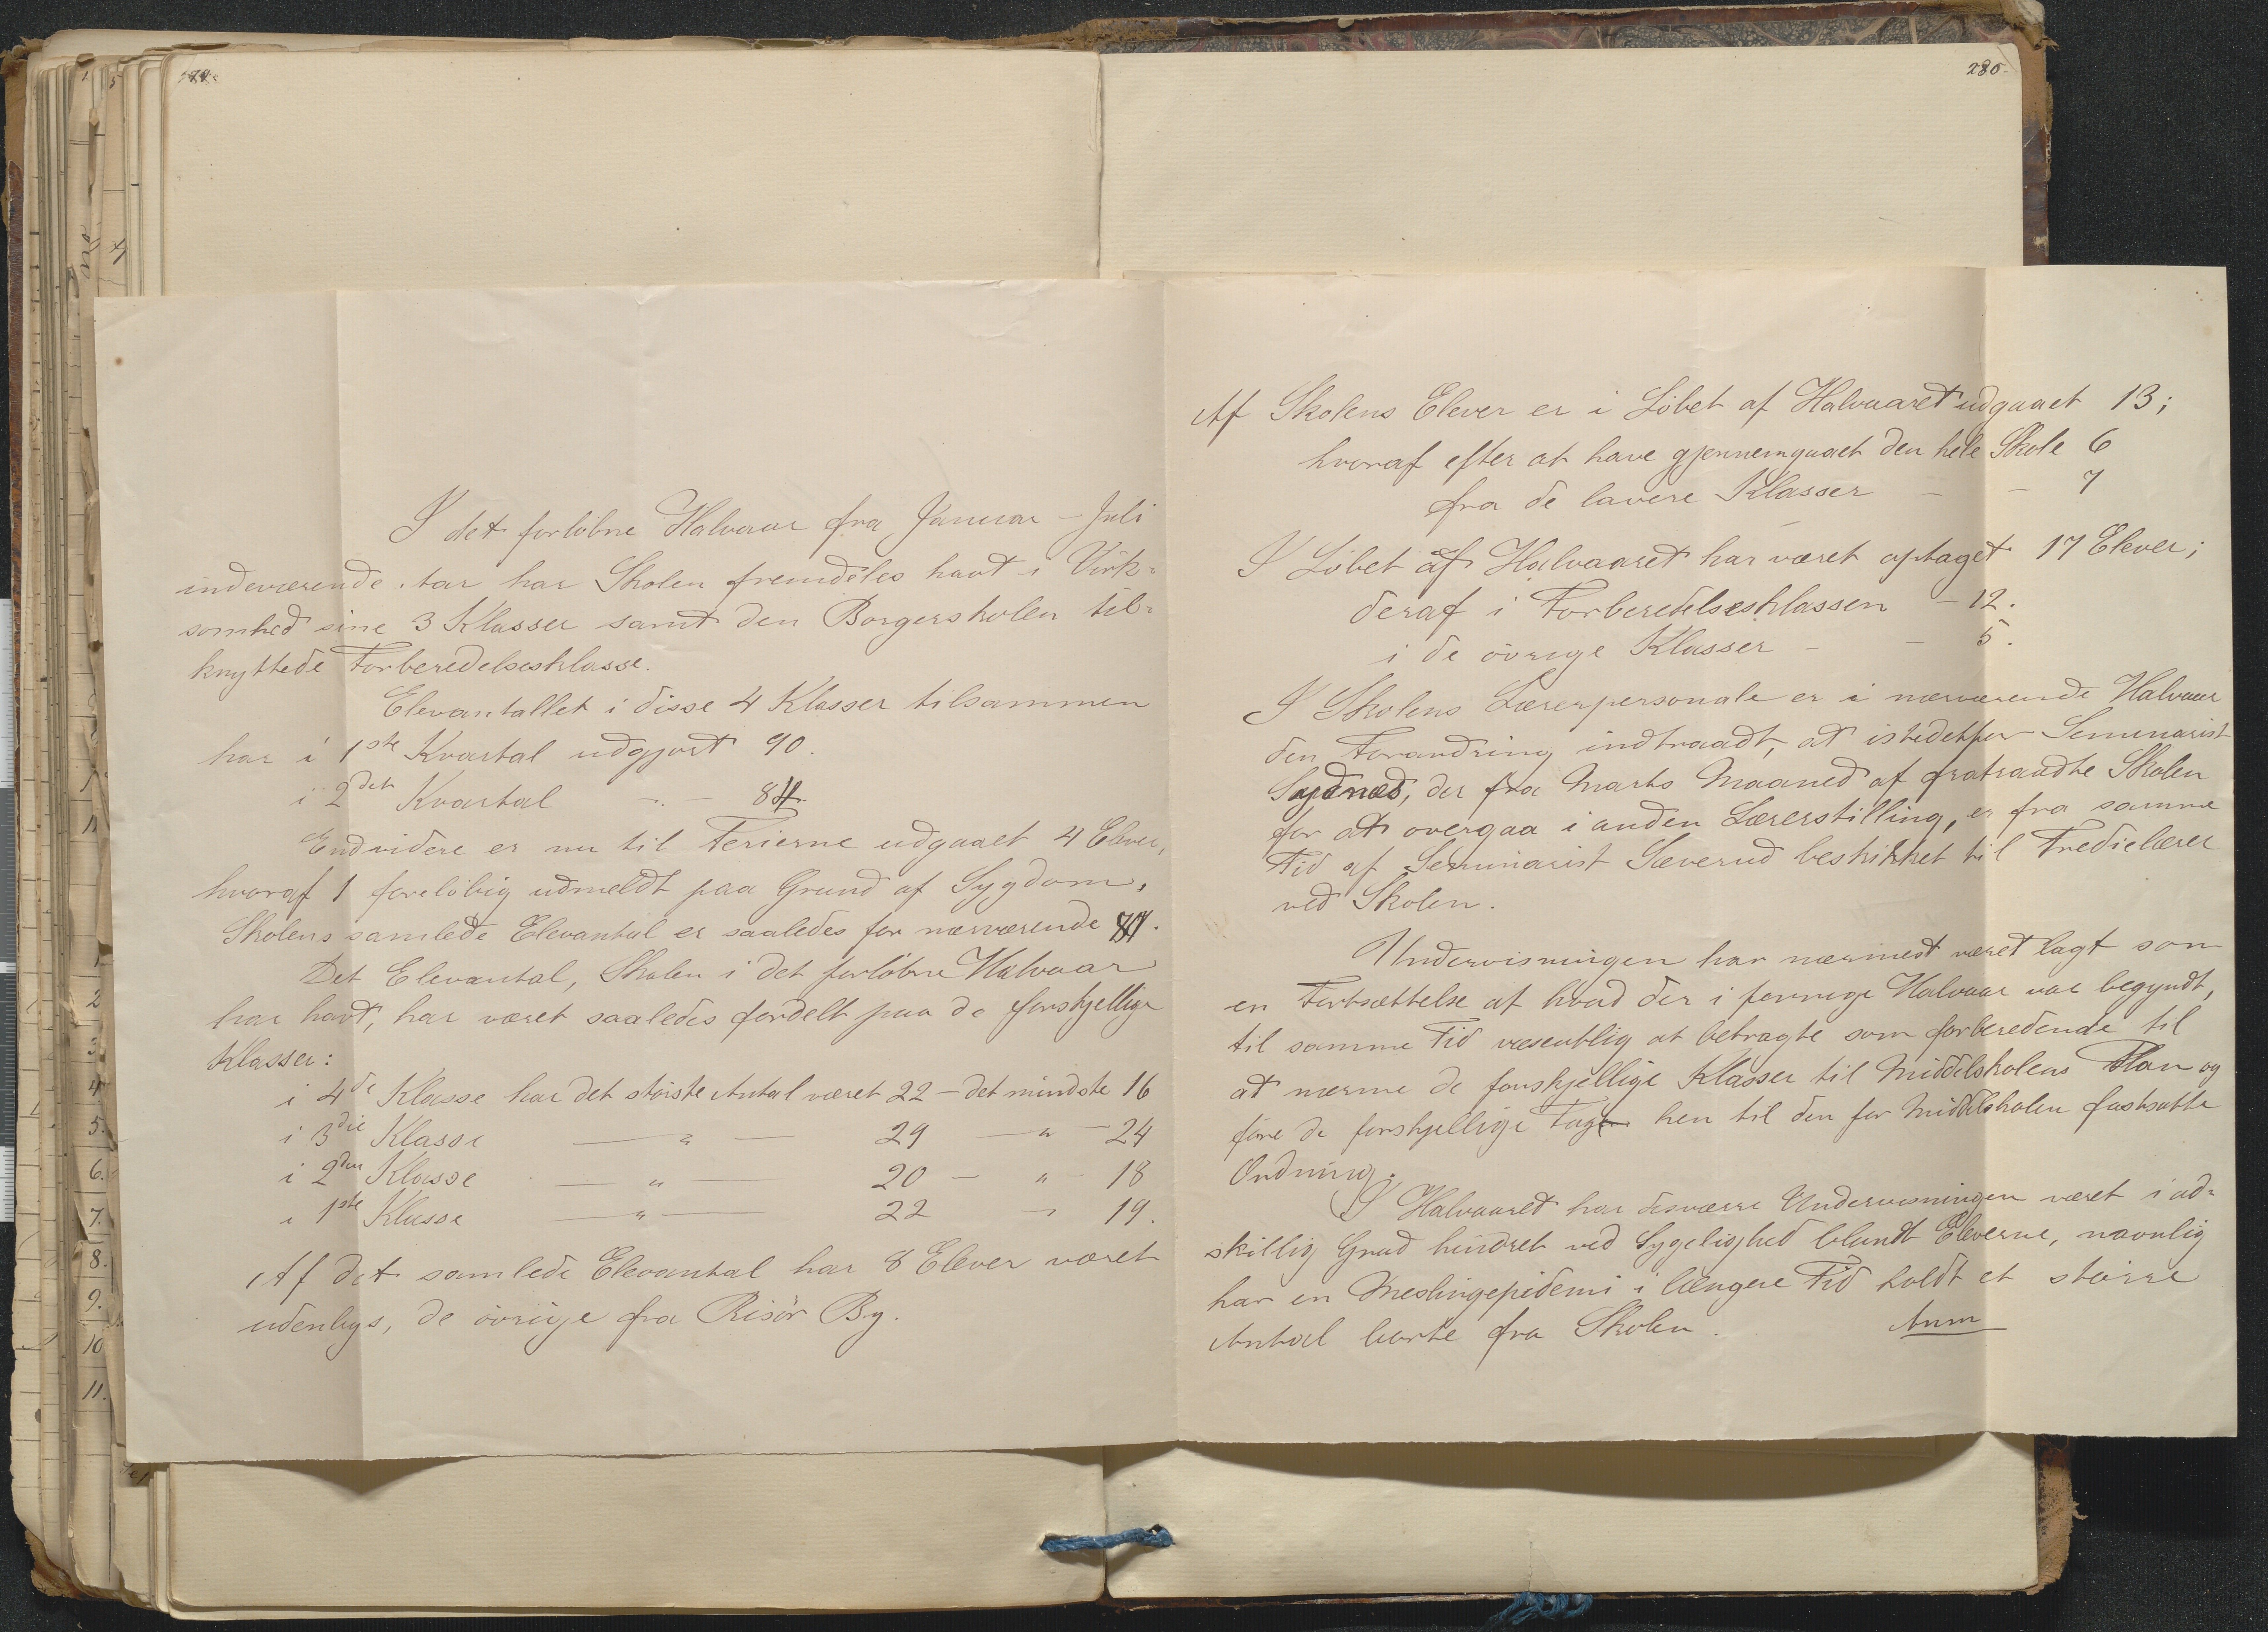 280.
I det forløbne Halvaar fra Januar - Juli
indeværende Aar har Skolen fremdeles havt i Virk-
somhed sine 3 Klasser samt den Borgerskolen til-
knyttede Forberedelsesklasse.
Elevantallet i disse 4 Klasser tilsammen
har i 1ste Kvartal udgjort 90.
i 2det Kvartal - " - 84.
Endvidere er nu til Ferierne udgaaet 4 Elever,
hvoraf 1 foreløbig udmeldt paa Grund af Sygdom,
Skolens samlede Elevantal er saaledes for nærværende
Det Elevantal, Skolen i det forløbne Halvaar
har havt, har været saaledes fordelt paa de forskjellige
Klasser:
i 4de Klasse har det største Antal været 22 - det mindste 16
i 3die Klasse — " — 29 — " — 24
i 2den Klasse — " — 20 — " - 18
i 1ste Klasse — " — 22 — " 19.
Af det samlede Elevantal har 8 Elever været
udenbys, de øvrige fra Risør By.
Af Skolens Elever er i Løbet af Halvaaret udgaaet 13;
hvoraf efter at have gjennemgaaet den hele Skole 6
fra de lavere Klasser - - 7
I Løbet af Halvaaret har været optaget 17 Elever;
deraf i Forberedelsesklassen - 12.
i de øvrige Klasser - - 5.
I Skolens Lærerpersonale er i nærværende Halvaar
den Forandring indtraadt, at istedetfor Seminarist
Sydnæs, der fra Marts Maaned af fratraadte Skolen
for at overgaa i anden Lærerstilling, er fra samme
Tid af Seminarist Sæverud beskikket til Tredielærer
ved Skolen.
Undervisningen har nærmest været lagt som
en Fortsættelse af hvad der i forrige Halvaar var begyndt,
til samme Tid væsentlig at betragte som forberedende til
at nærme de forskjellige Klasser til Middelskolens Plan og
føre de forskjellige Fag hen til den for Middelskolen fastsatte
Ordning.
I Halvaaret har desværre Undervisningen været i ad-
skillig Grad hindret ved Sygelighed blandt Eleverne, navnlig
har en Meslingepidemi i længere Tid holdt et større
Antal borte fra Skolen. Anm